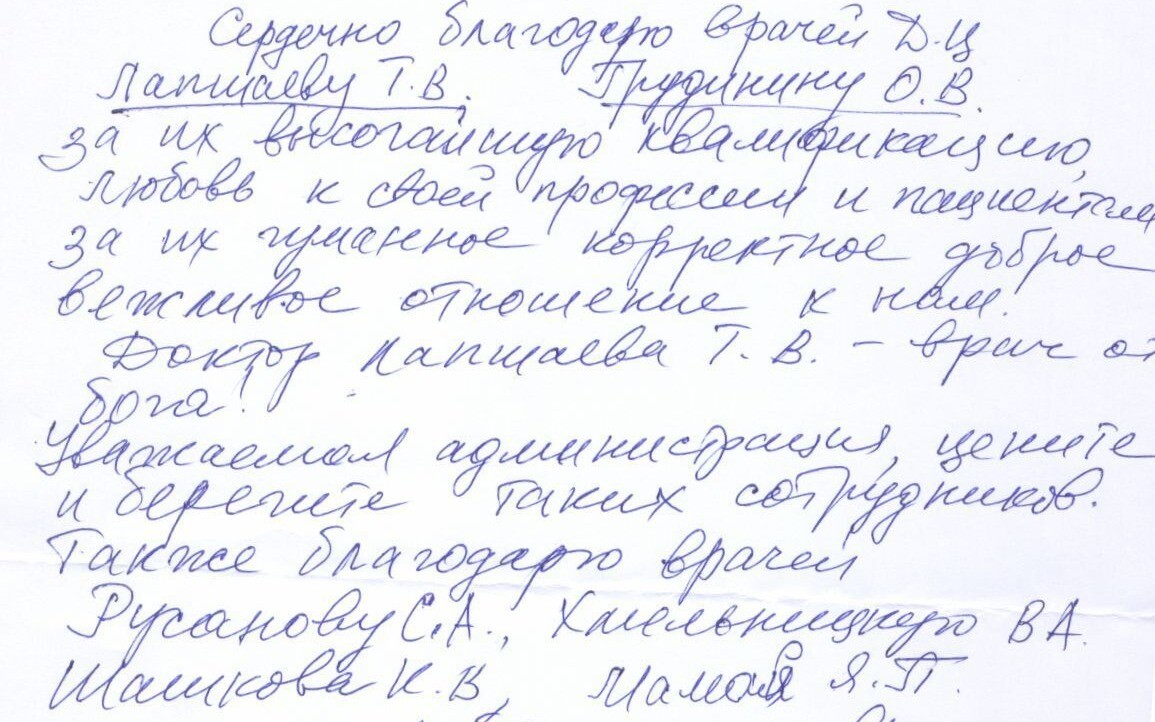 Сердечно благодарю врачей Д.Ц
Лапшаеву Т.В. Грудинину О.В.
за их высочайшую квалификацию,
любовь к своей профессии и пациентам
за их гуманное корректное доброе
вежливое отношение к нам.
Доктор Лапшаева Т.В. – врач от
бога!
Уважаемая администрация, цените
и берегите таких сотрудников.
Также благодарю врачей
Русанову С.А., Хмельницкую В А.
Шашкова К.В, Мамая Я.П.